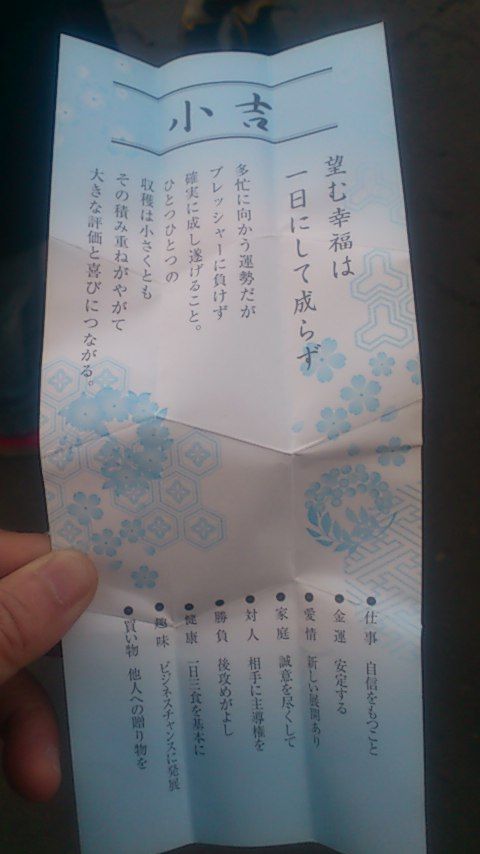 小吉
望む幸福は
一日にして成らず
多忙に向かう運勢だが
プレッシャーに負けず
確実に成し遂げること。
ひとつひとつの
収穫は小さくとも
その積み重ねがやがて
大きな評価と喜びにつながる。
●仕事 自信をもつこと
●金運 安定する
●愛情 新しい展開あり
●家庭 誠意を尽くして
●対人 相手に主導権を
●勝負 後攻めがよし
●健康 一日三食を基本に
●趣味 ビジネスチャンスに発展
●買い物 他人への贈り物を